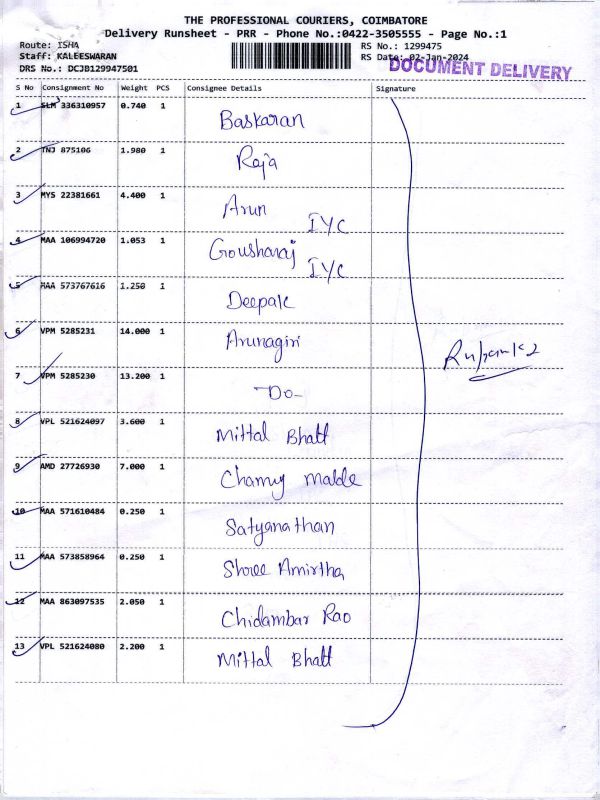 THE PROFESSIONAL COURIERS, COIMBATORE
Delivery Runsheet - PRR - Phone No.:0422-3505555 - Page No.:1
Route: ISHA
Staff: KALEESWARAN
DRS No.: DCJB129947501
RS No.: 1299475
RS Date: 02-Jan-2024
DOCUMENT DELIVERY
S No Consignment No Weight PCS Consignee Details Signature
1 SLM 336310957 0.740 1 Baskaran
2 TNJ 875106 1.980 1 Raja
3 MYS 22381661 4.400 1 Arun IYC
4 MAA 106994720 1.053 1 Gousharaj IYC
5 MAA 573767616 1.250 1 Deepak
6 VPM 5285231 14.000 1 Arunagiri
7 VPM 5285230 13.200 1 -Do-
8 VPL 521624097 3.600 1 Mittal Bhatt
9 AMD 27726930 7.000 1 Malde
10 MAA 571610484 0.250 1 Satyanathan
11 MAA 573858964 0.250 1 Shree Amirtha
12 MAA 863097535 2.050 1 Chidambar Rao
13 VPL 521624080 2.200 1 Mittal Bhatt